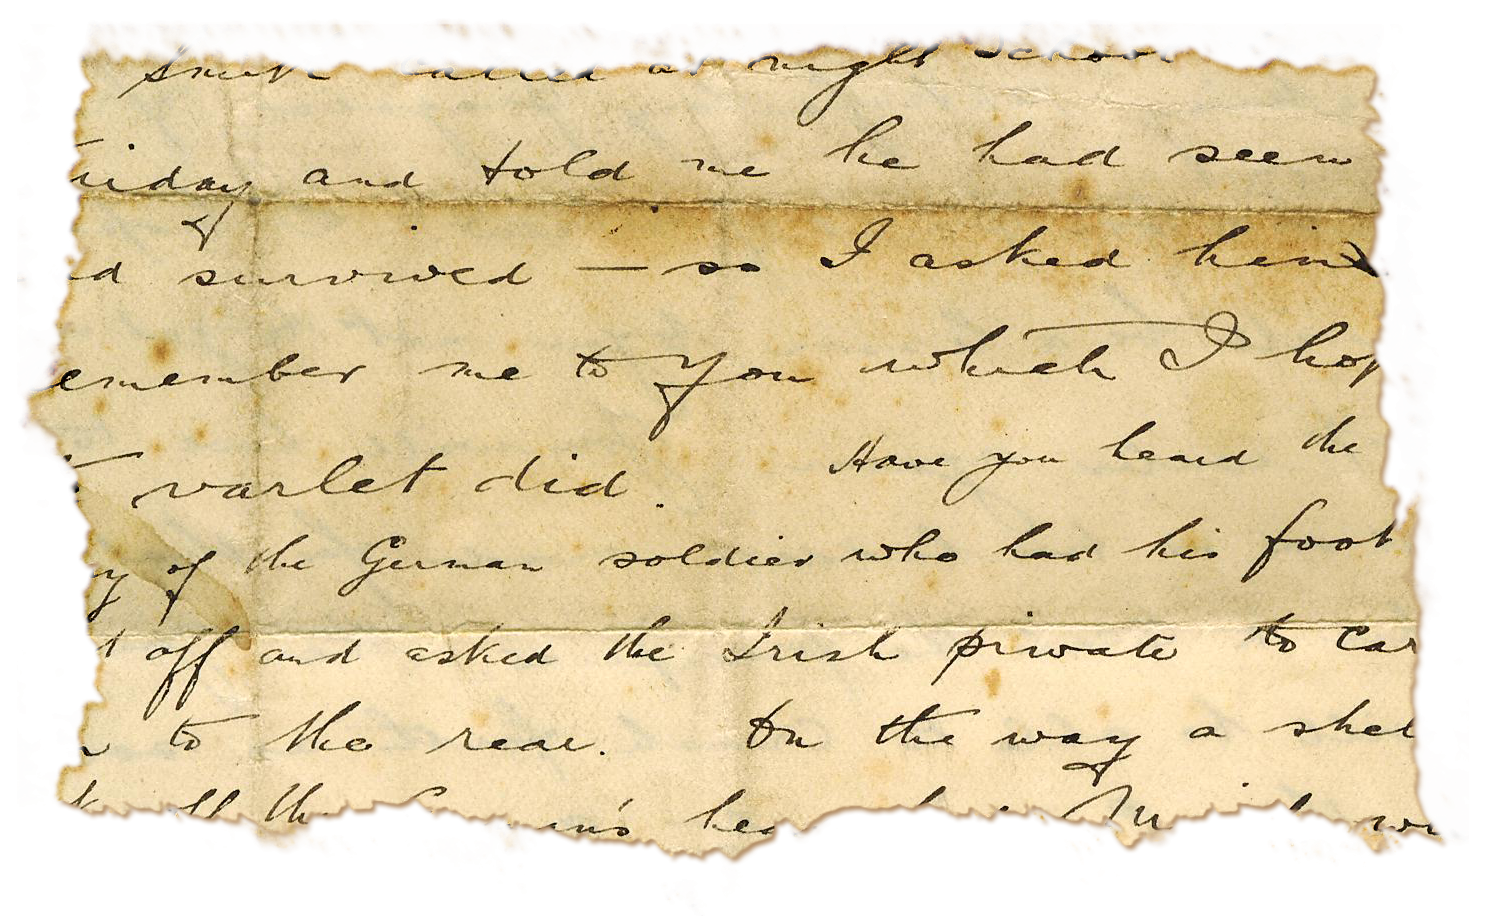 Smith called at night School
riday and told me he had seen
d survived — so I asked him
emember me to you which I hop
t varlet did. Have you heard the
y of the German soldier who had his foot
t off and asked the Irish private to car
to the rear. On the way a shel
off the German's hea